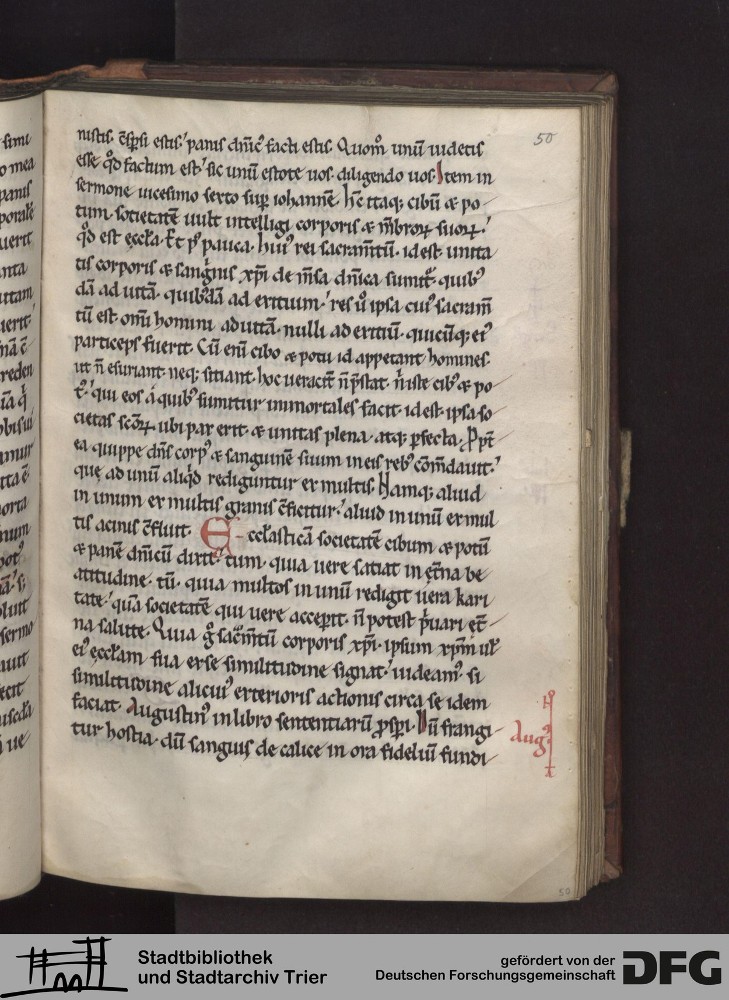 50
nistis. c̄spsi estis. panis dn̄ic᷒ facti estis. Quom̊ unū uidetis
esse qd̊ factum est. sic unū estote uos. diligendo uos. Item in
sermone uicesimo sexto sup̄ iohannē. h̄c itaq; cibū & po
tum. societatē uult intelligi corporis & m̄broꝝ suoꝝ.
qd̊ est ęccła. Et p᷒ pauca. hui᷒ rei sacram̄tū. idest unita
tis corporis & sang̍nis xp̄i de m̄sa dn̄ica sumit᷑. quib᷒
dā ad uitā. quibdā ad exitium. res ů ipsa cui᷒ sacram̄
tū est. om̄i homini ad uitā. nulli ad exitiū. quicūq; ei᷒
particeps fuerit. Cū eni cibo & potu id appetant homines.
ut n̄ esuriant neq; sitiant. hoc ueracit̄ n̄ p̄stat. n̍ iste cib᷒ & po
t᷒. qui eos á quib᷒ sumitur immortales facit. idest ipsa so
cietas scōꝝ. ubi pax erit & unitas plena. atq; pfecta. Ppt̄
ea quippe dn̄s corp᷒ & sanguinē suum in eis reb᷒ cōm̄dauit.
quę ad unū aliq̍d rediguntur ex multis. Namq; aliud
in unum ex multis granis c̄ficitur. aliud in unū ex mul
tis acinis c̄fluit. Eccłasticā societatē cibum & potū
& panē dn̄icū dixit. tum. quia uere satiat in ęt̄na be
atitudine. tū. quia multos in unū redigit uera kari
tate. quā societatē qui uere acceperit. n̄ potest p̍uari ęt̄
na salute. Quia g̊ sac̄m̄tū corporis xp̄i. ipsum xp̄m uł
ei᷒ ęccłam sua ex se similitudine signat. uideam᷒ si
similitudine alicui᷒ exterioris actionis circa se idem
faciat. Augustin᷒ in libro sententiarū pspi. Dū frangi
tur hostia. dū sanguis de calice in ora fideliū fundi
Aug᷒
Stadtbibliothek
und Stadtarchiv Trier
gefördert von der
Deutschen Forschungsgemeinschaft
DFG